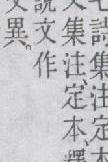 詩集注定本
文集注定本釋
說文作
文異